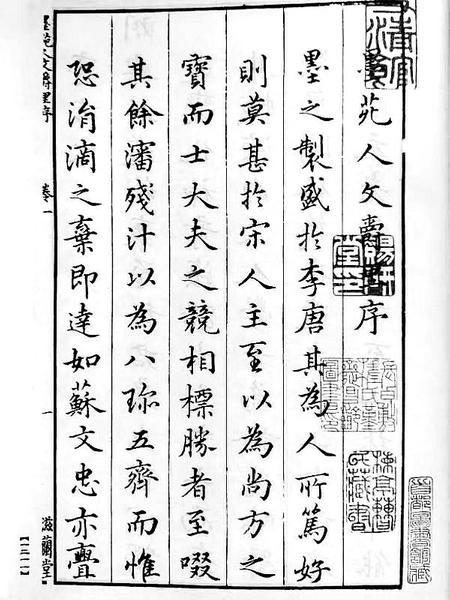 墨苑人文爵里序
墨之製盛於李唐其為人所篤好
則莫甚於宋人主至以為尚方之
寶而士大夫之競相標勝者至啜
其餘瀋殘汁以為八珎五齊而惟
恐涓滴之棄即達如蘇文忠亦亹
墨苑人文爵里序
卷一
一
滋蘭堂
楝亭曹氏藏書